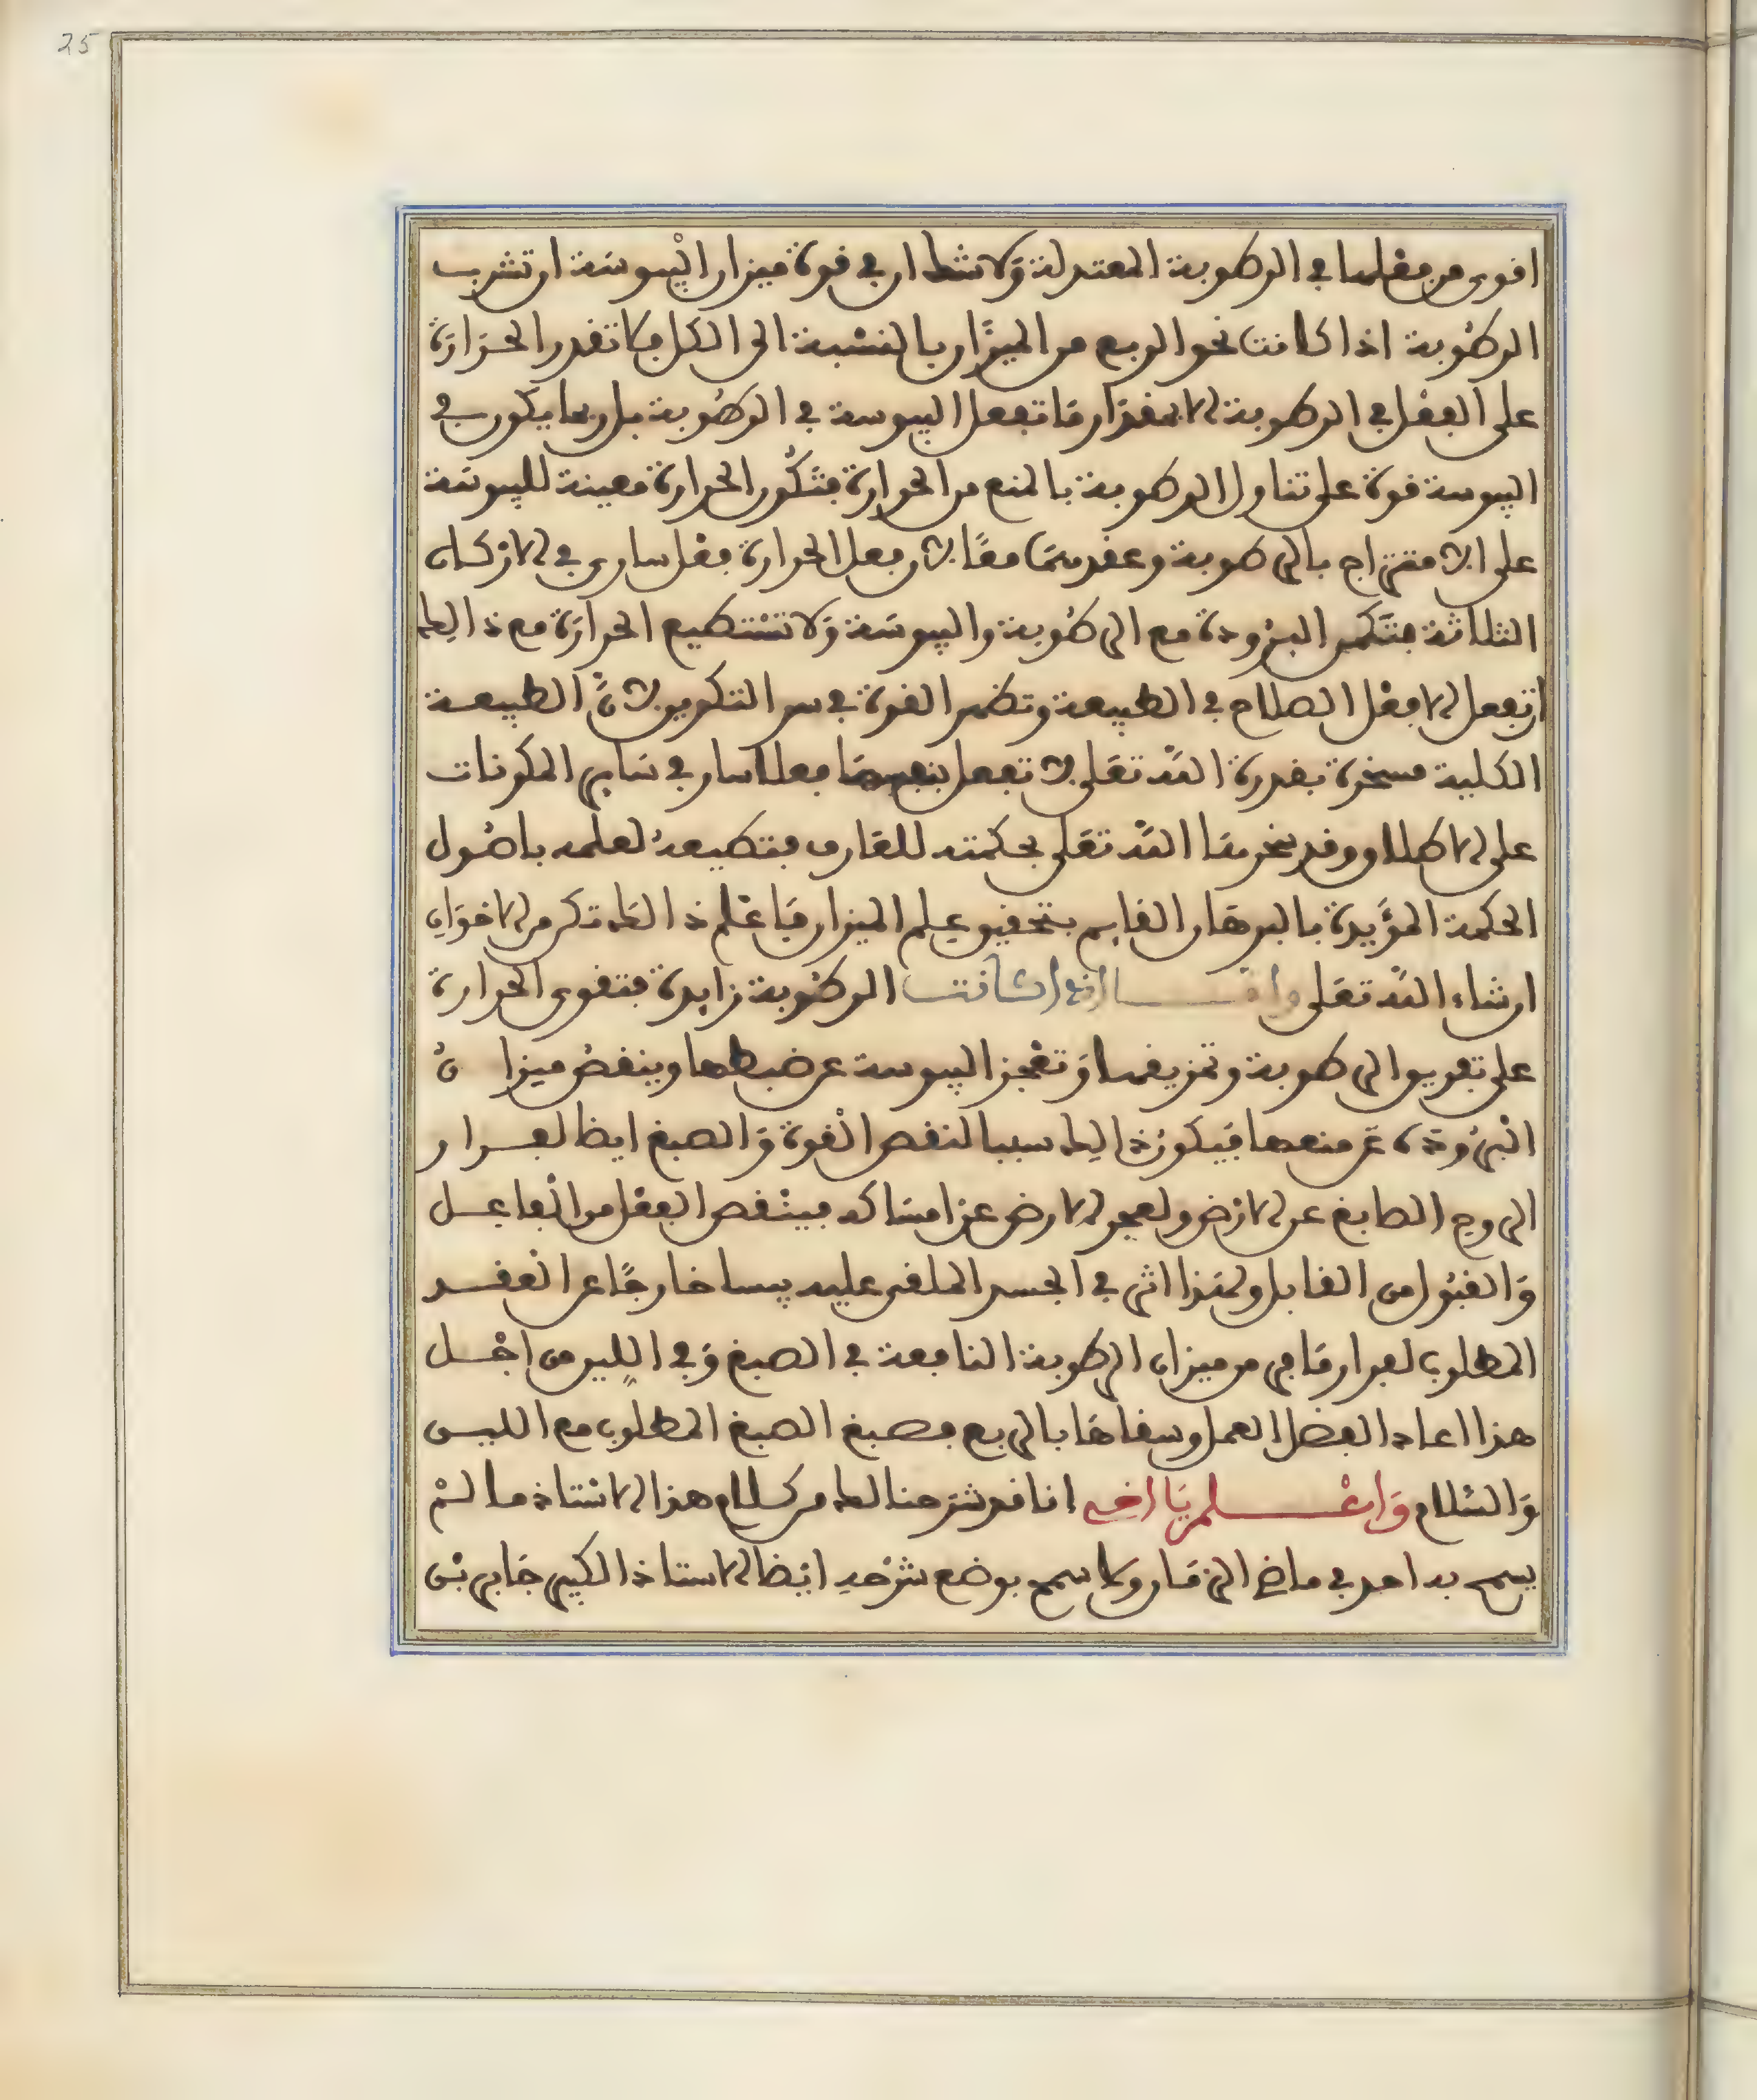 25
اقوى من فعلها في الرطوبة المعتدلة ولا شك ان في قوة ميزان اليبوسة ان تشرب
الرطوبة اذا كانت نحو الربع من الميزان بالنسبة الى الكل فلا تقدر الحرارة
على الفعل في الرطوبة الا بمقدار ما تفعل اليبوسة في الرطوبة بل ربما يكون في
اليبوسة قوة على تناول الرطوبة بالمنع من الحرارة فتكون الحرارة معينة لليبوسة
على الامتزاج بالرطوبة وعقدهما معا لان فعل الحرارة فعل ساري في الاركان
الثلاثة فتكمن البرودة مع الرطوبة واليبوسة ولا تستطيع الحرارة مع ذالك
ان تفعل الا فعل الصلاح في الطبيعة وتظهر القوة في سر التكوين لان الطبيعة
الكلية مسخرة بقدرة الله تعلى لا تفعل بنفسها فعلا سار في ساير المكونات
على الاطلاق وقد سخرها الله تعلى بحكمته للعارف فتطيعه لعلمه باصول
الحكمة المؤيدة بالبرهان القايم بتحقيق علم الميزان فاعلم ذالك تكن من الاخوان
ان شاء الله تعلى واما ان كانت الرطوبة زايدة فتقوى الحرارة
على تفريق الرطوبة وتمزيقها وتعجز اليبوسة عن ضبطها وينقص ميزان
البرودة عن منعها فيكون ذالك سببا لنقص القوة والصبغ ايضا لفرار
الروح الصابغ عن الارض ولعجز الارض عن امساكه فينقص الفعل من الفاعل
والقبول من القابل ولهذا اثر في الجسد الملقى عليه يبسا خارجا عن العقد
المطلوب لفرار ما فر من ميزان الرطوبة النافعة في الصبغ وفي اللين من اجل
هذا اعاد الفضل العمل وسقاها بالربع فصبغ الصبغ المطلوب مع اللين
والسلام واعلم يا اخي انا قد شرحنا لك من كلام هذا الاستاذ ما لم
يسمح به احد في ماضي الزمان ولا سمح بوضع شرحه ايضا الاستاذ الكبير جابر بن